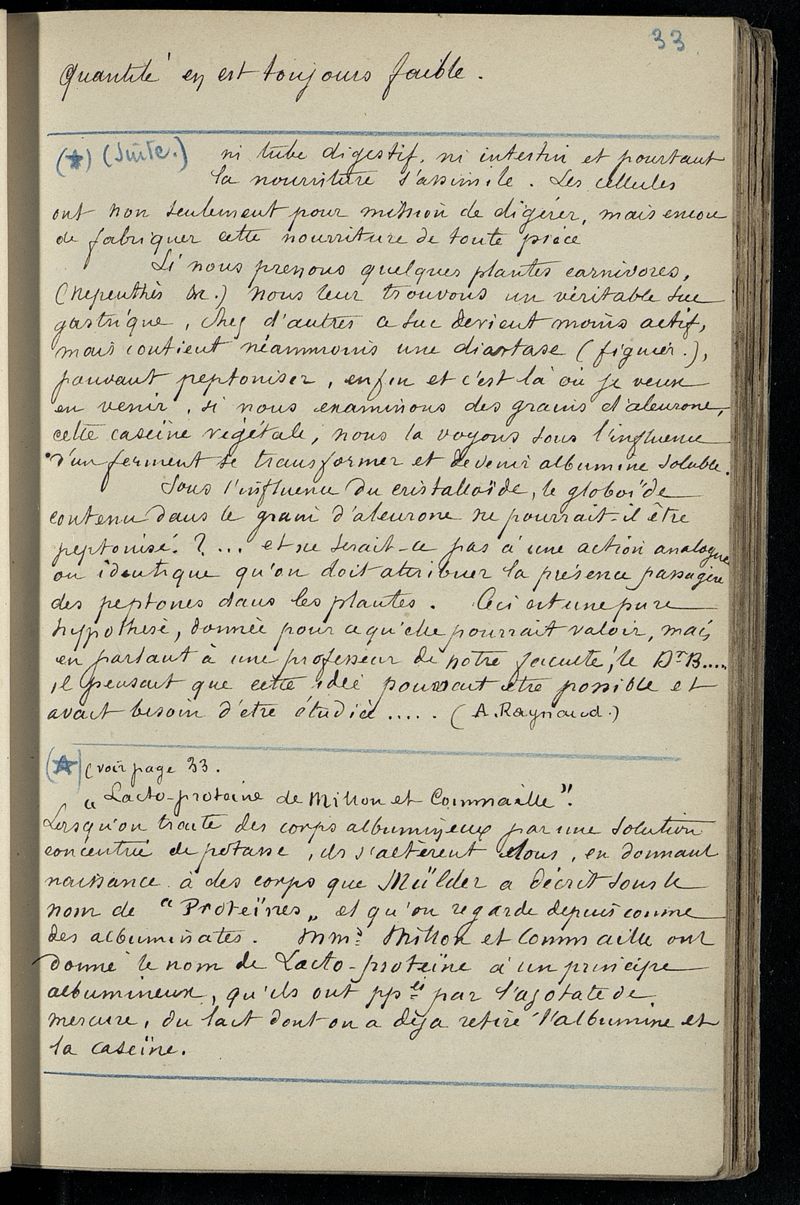 33
quantité en est toujours faible.
(★) (Suite.) ni tube digestif, ni intestin et pourtant
la nourriture s'assimile. Les cellules
ont non seulement pour mission de digérer, mais encore
de fabriquer cette nourriture de toute pièce
Si nous prenons quelques plantes carnivores,
(Nepenthès &c.) nous leur trouvons un véritable suc
gastrique, chez d'autres ce suc devient moins actif,
mais contient néammoins une diastase (figuier.),
pouvant peptoniser, enfin et c'est là où je veux
en venir, si nous examinons des grains d'aleurone,
cette caseïne végétale, nous la voyons sous l'influence
d'un ferment se transformer et devenir albumine soluble.
Sous l'influence du cristalloïde, le globoïde
contenu dans le grain d'aleurone ne pourrait-il être
peptonisé. ? ... et ne serait-ce pas à une action analogue
ou identique qu'on doit attribuer la présence passagère
des peptones dans les plantes. Ceci est une pure
hypothèse, donnée pour ce qu'elle pourrait valoir, mais
en parlant à une professeur de notre faculté, le Dr B.....
il pensait que cette idée pouvait etre possible et
avait besoin d'être étudiée ..... (A. Raynaud.)
(★) (voir page 33.
"Lacto-proteine de Millon et Commaille".
Lorsqu'on traite des corps albumineux par une solution
concentrée de potasse, ils s'altèrent tous, en donnant
naissance à des corps que Mülder a décrit sous le
nom de "Proteïnes„ et qu'on regarde depuis comme
des albuminates. Mms Millon et Commaille ont
donné le nom de Lacto-proteïne à un principe
albumineux, qu'ils ont ppté par l'azotate de
mercure, du lait dont on a déja retiré l'albumine et
la caseïne.